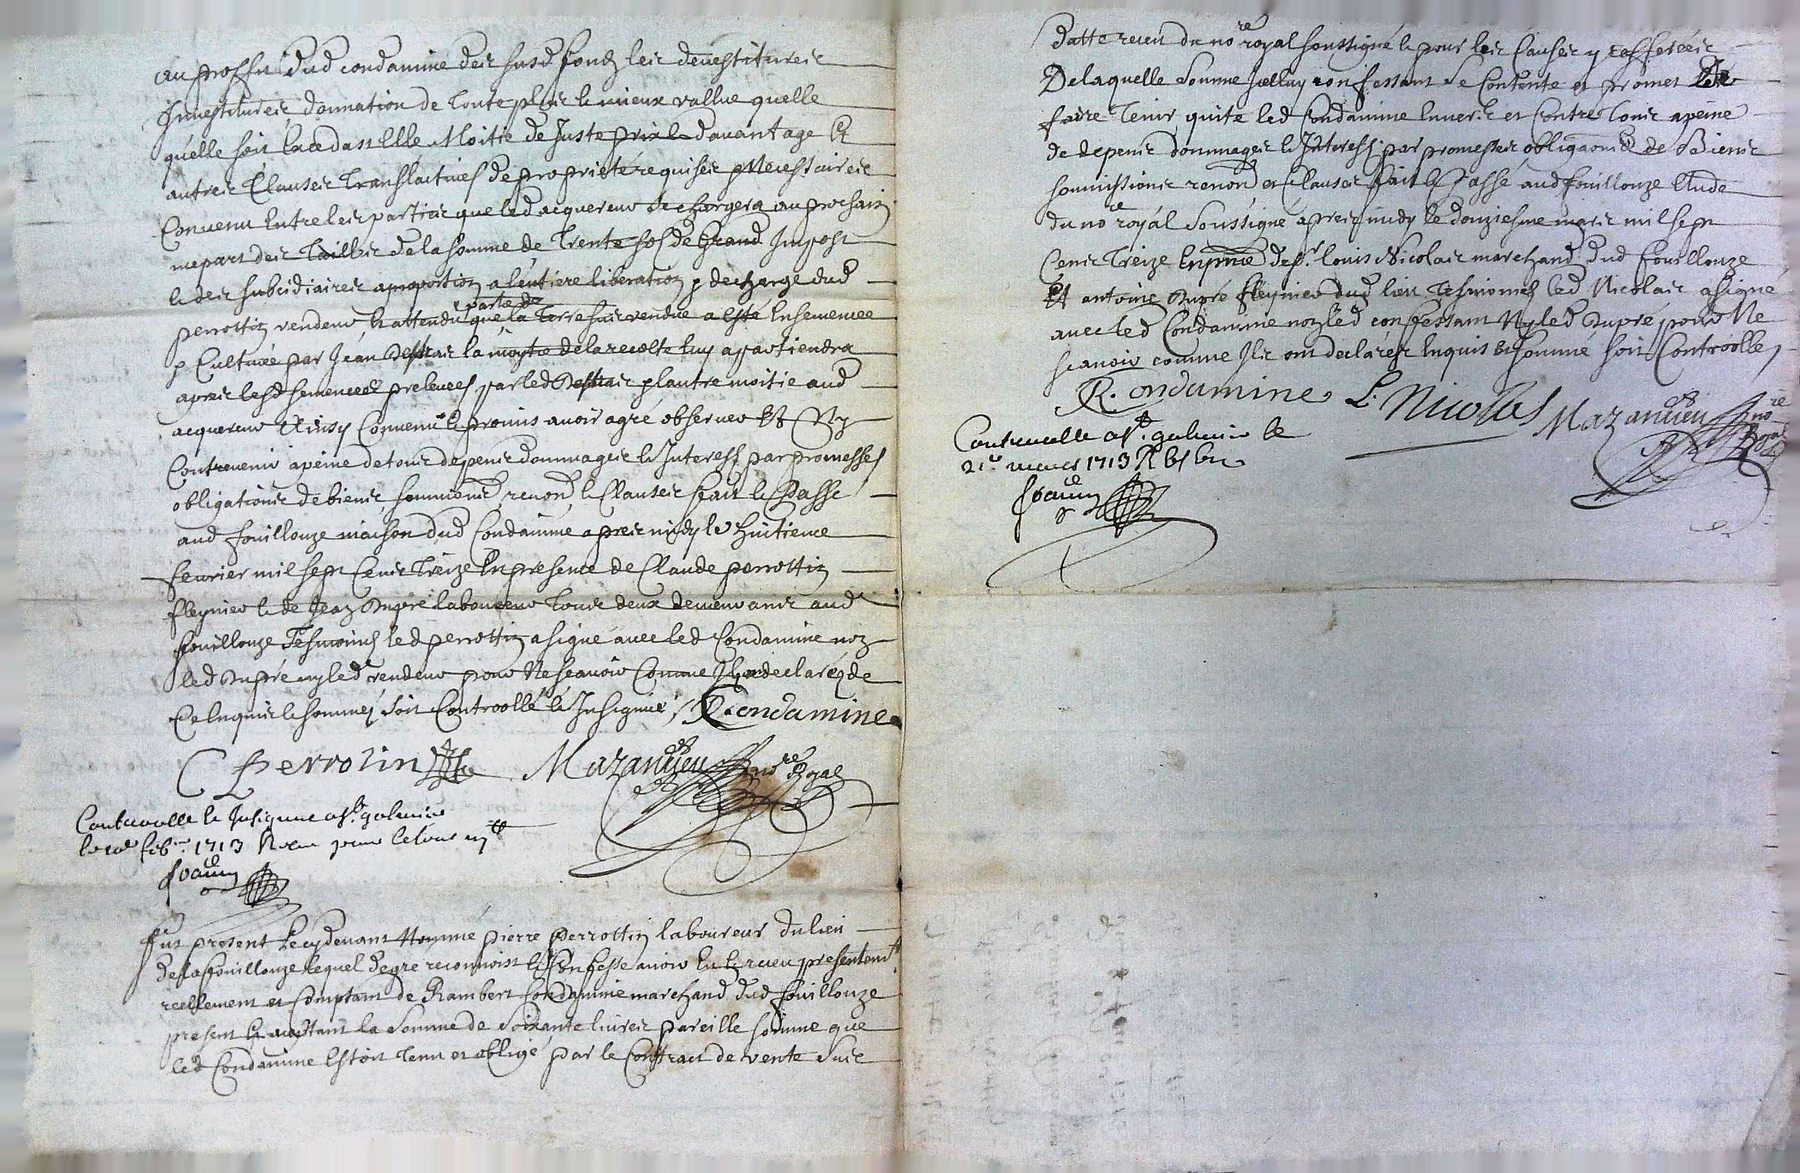 au proffit dud condamine des susd fondz les devestitures
Investitures donnation de toute plus le mieux vallue quelle
quelle soit excedast Elle Moitie de Juste prix le davantage Et
autres Clauses translactives de proprieté requises Necessaires
Convenu Entre les parties que led acquereur se chargera au prochain
mepart des tailles de la somme de trente sos de Grand Impost
le des subcidiaires a proportion a lentiere liberation p decharge dud
perrottin vendeur Et attendu que la
partie de
terre sus vendue a esté Ensemencée
p Cultivée par Jean la moytié de la recolte luy apartiendra
apres lesd semences prelevees par led p lautre moitie aud
acquereur Ainsy Convenu le promis avoir agré observer Et Ny
Contrevenir a peine de tous depens dommages le Interest par promesses
obligations de biens, renond le Clauses fait le Passé
aud fouillouze maison dud Condamine apres midy le huitieme
fevrier mil sept Cens treize En presence de Claude perrottin
le de Jean Dupré laboureur tous deux demeurants aud
fouillouze tesmoins led perrottin a signé avec led Condamine non
led Dupré ny led vendeur pour Ne scavoir Comme Ilz declaré de
Ce Enquis le sommés soit Controollé le Insigniné, R. Condamine
C Perrotin Mazancieu nore Royal
Controolle le Insignine a St galmier
le feb. 1713 Receu
fut present le cy devant Nommé pierre perrottin laboureur du lieu
de la fouillouze lequel de gre reconnoist le Confesse avoir Eu le receu presentemt
reellement et Comptant de Rambert Condamine marchand dud fouillouze
present le acceptant la somme de soixante livres pareille somme que
led Condamine Estoit tenu et obligé par le Contract de vente sus
datte receu du nore royal soussigné le pour les Causes y
De laquelle somme Jcelluy confessant se Contente et promet
faire tenir quite led Condamine Envers et Contre tous a peine
de depens dommages le Interest par promesses obligaons de biens
soumissions renond et Clauses fait le Passé aud fouillouze Etude
du nore royal soussigné apres midy le douziesme mars mil sept
Cens treize En pnce de sr. louis Nicolas marchand dud fouillouze
Et antoine Dupré dud lieu tesmoins led Nicolas a signé
avec led Condamine non led confessant Ny led Dupré pour Ne
scavoir comme Ilz ont declarés Enquis Et sommé soit Controollé,
R. Condamine L. Nicolas Mazancieu nore Royal
Controolle a St. galmier le
21e mars 1713 R